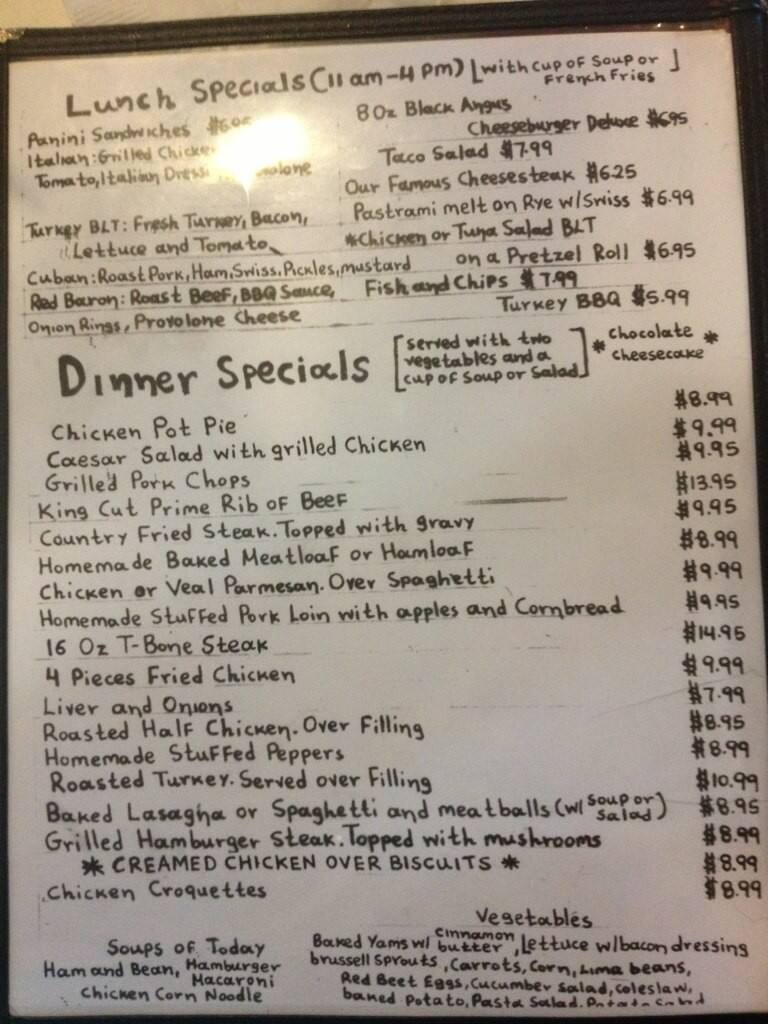 Lunch Specials (11 am-4 pm) [with cup of soup or French Fries]
Panini Sandwiches
Italian: Grilled
Tomato, Italian
Turkey BLT: Fresh Turkey, Bacon,
Lettuce and Tomato
Cuban: Roast Pork, Ham, Swiss, Pickles, mustard
Red Baron: Roast Beef, BBQ Sauce,
Onion Rings, Provolone Cheese
8 Oz Black Angus
Cheeseburger Deluxe $6.95
Taco Salad $7.99
Our Famous Cheesesteak $6.25
Pastrami melt on Rye w/Swiss $6.99
*Chicken or Tuna Salad BLT
on a Pretzel Roll $6.95
Fish and Chips $7.99
Turkey BBQ $5.99
Dinner Specials [served with two vegetables and a cup of soup or salad]
* chocolate cheesecake *
Chicken Pot Pie $8.99
Caesar Salad with grilled Chicken $9.99
Grilled Pork Chops $9.95
King Cut Prime Rib of Beef $13.95
Country Fried Steak. Topped with gravy $9.95
Homemade Baked Meatloaf or Hamloaf $8.99
Chicken or Veal Parmesan. Over Spaghetti $9.99
Homemade Stuffed Pork Loin with apples and Cornbread $9.95
16 Oz T-Bone Steak $14.95
4 Pieces Fried Chicken $9.99
Liver and Onions $7.99
Roasted Half Chicken. Over Filling $8.95
Homemade Stuffed Peppers $8.99
Roasted Turkey. Served over Filling $10.99
Baked Lasagna or Spaghetti and meatballs (w/ soup or salad) $8.95
Grilled Hamburger Steak. Topped with mushrooms $8.99
* CREAMED CHICKEN OVER BISCUITS * $8.99
Chicken Croquettes $8.99
Soups of Today
Ham and Bean, Hamburger Macaroni
Chicken Corn Noodle
Vegetables
Baked Yams w/ cinnamon butter, Lettuce w/bacon dressing
brussell sprouts, Carrots, Corn, Lima beans,
Red Beet Eggs, Cucumber Salad, coleslaw,
baked Potato, Pasta Salad, Potato Salad